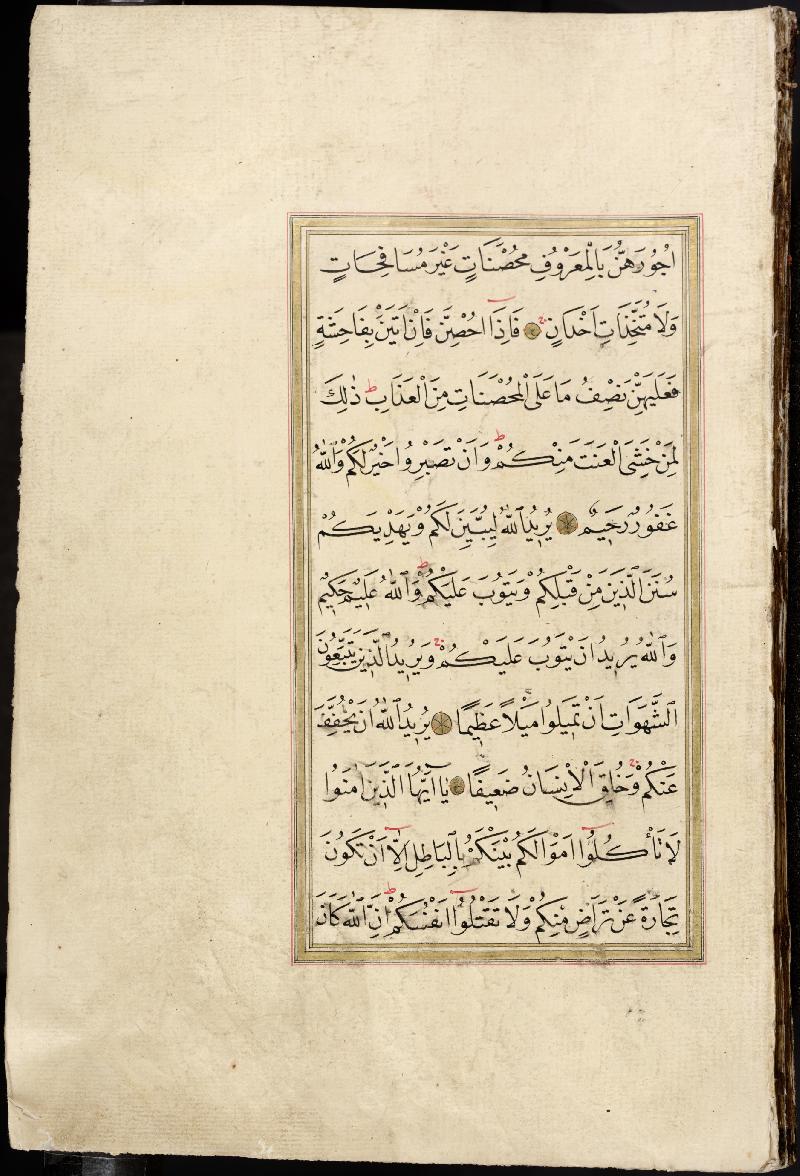 اُجُورَهُنَّ بِالْمَعْرُوفِ مُحْصَنَاتٍ غَيْرَ مُسَافِحَاتٍ
وَلَا مُتَّخِذَاتِ اَخْدَانٍ ۚ فَاِذَٓا اُحْصِنَّ فَاِنْ اَتَيْنَ بِفَاحِشَةٍ
فَعَلَيْهِنَّ نِصْفُ مَا عَلَى الْمُحْصَنَاتِ مِنَ الْعَذَابِ ؕ ذٰلِكَ
لِمَنْ خَشِىَ الْعَنَتَ مِنْكُمْ ؕ وَاَنْ تَصْبِرُوا خَيْرٌ لَكُمْ وَاللّٰهُ
غَفُورٌ رَحِيمٌ ۝ يُرِيدُ اللّٰهُ لِيُبَيِّنَ لَكُمْ وَيَهْدِيَكُمْ
سُنَنَ الَّذِينَ مِنْ قَبْلِكُمْ وَيَتُوبَ عَلَيْكُمْ ؕ وَاللّٰهُ عَلِيمٌ حَكِيمٌ
وَاللّٰهُ يُرِيدُ اَنْ يَتُوبَ عَلَيْكُمْ وَيُرِيدُ الَّذِينَ يَتَّبِعُونَ
الشَّهَوَاتِ اَنْ تَمِيلُوا مَيْلًا عَظِيمًا ۝ يُرِيدُ اللّٰهُ اَنْ يُخَفِّفَ
عَنْكُمْ ۚ وَخُلِقَ الْاِنْسَانُ ضَعِيفًا ۝ يَٓا اَيُّهَا الَّذِينَ اٰمَنُوا
لَا تَأْكُلُٓوا اَمْوَالَكُمْ بَيْنَكُمْ بِالْبَاطِلِ اِلَّٓا اَنْ تَكُونَ
تِجَارَةً عَنْ تَرَاضٍ مِنْكُمْ وَلَا تَقْتُلُٓوا اَنْفُسَكُمْ ؕ اِنَّ اللّٰهَ كَانَ